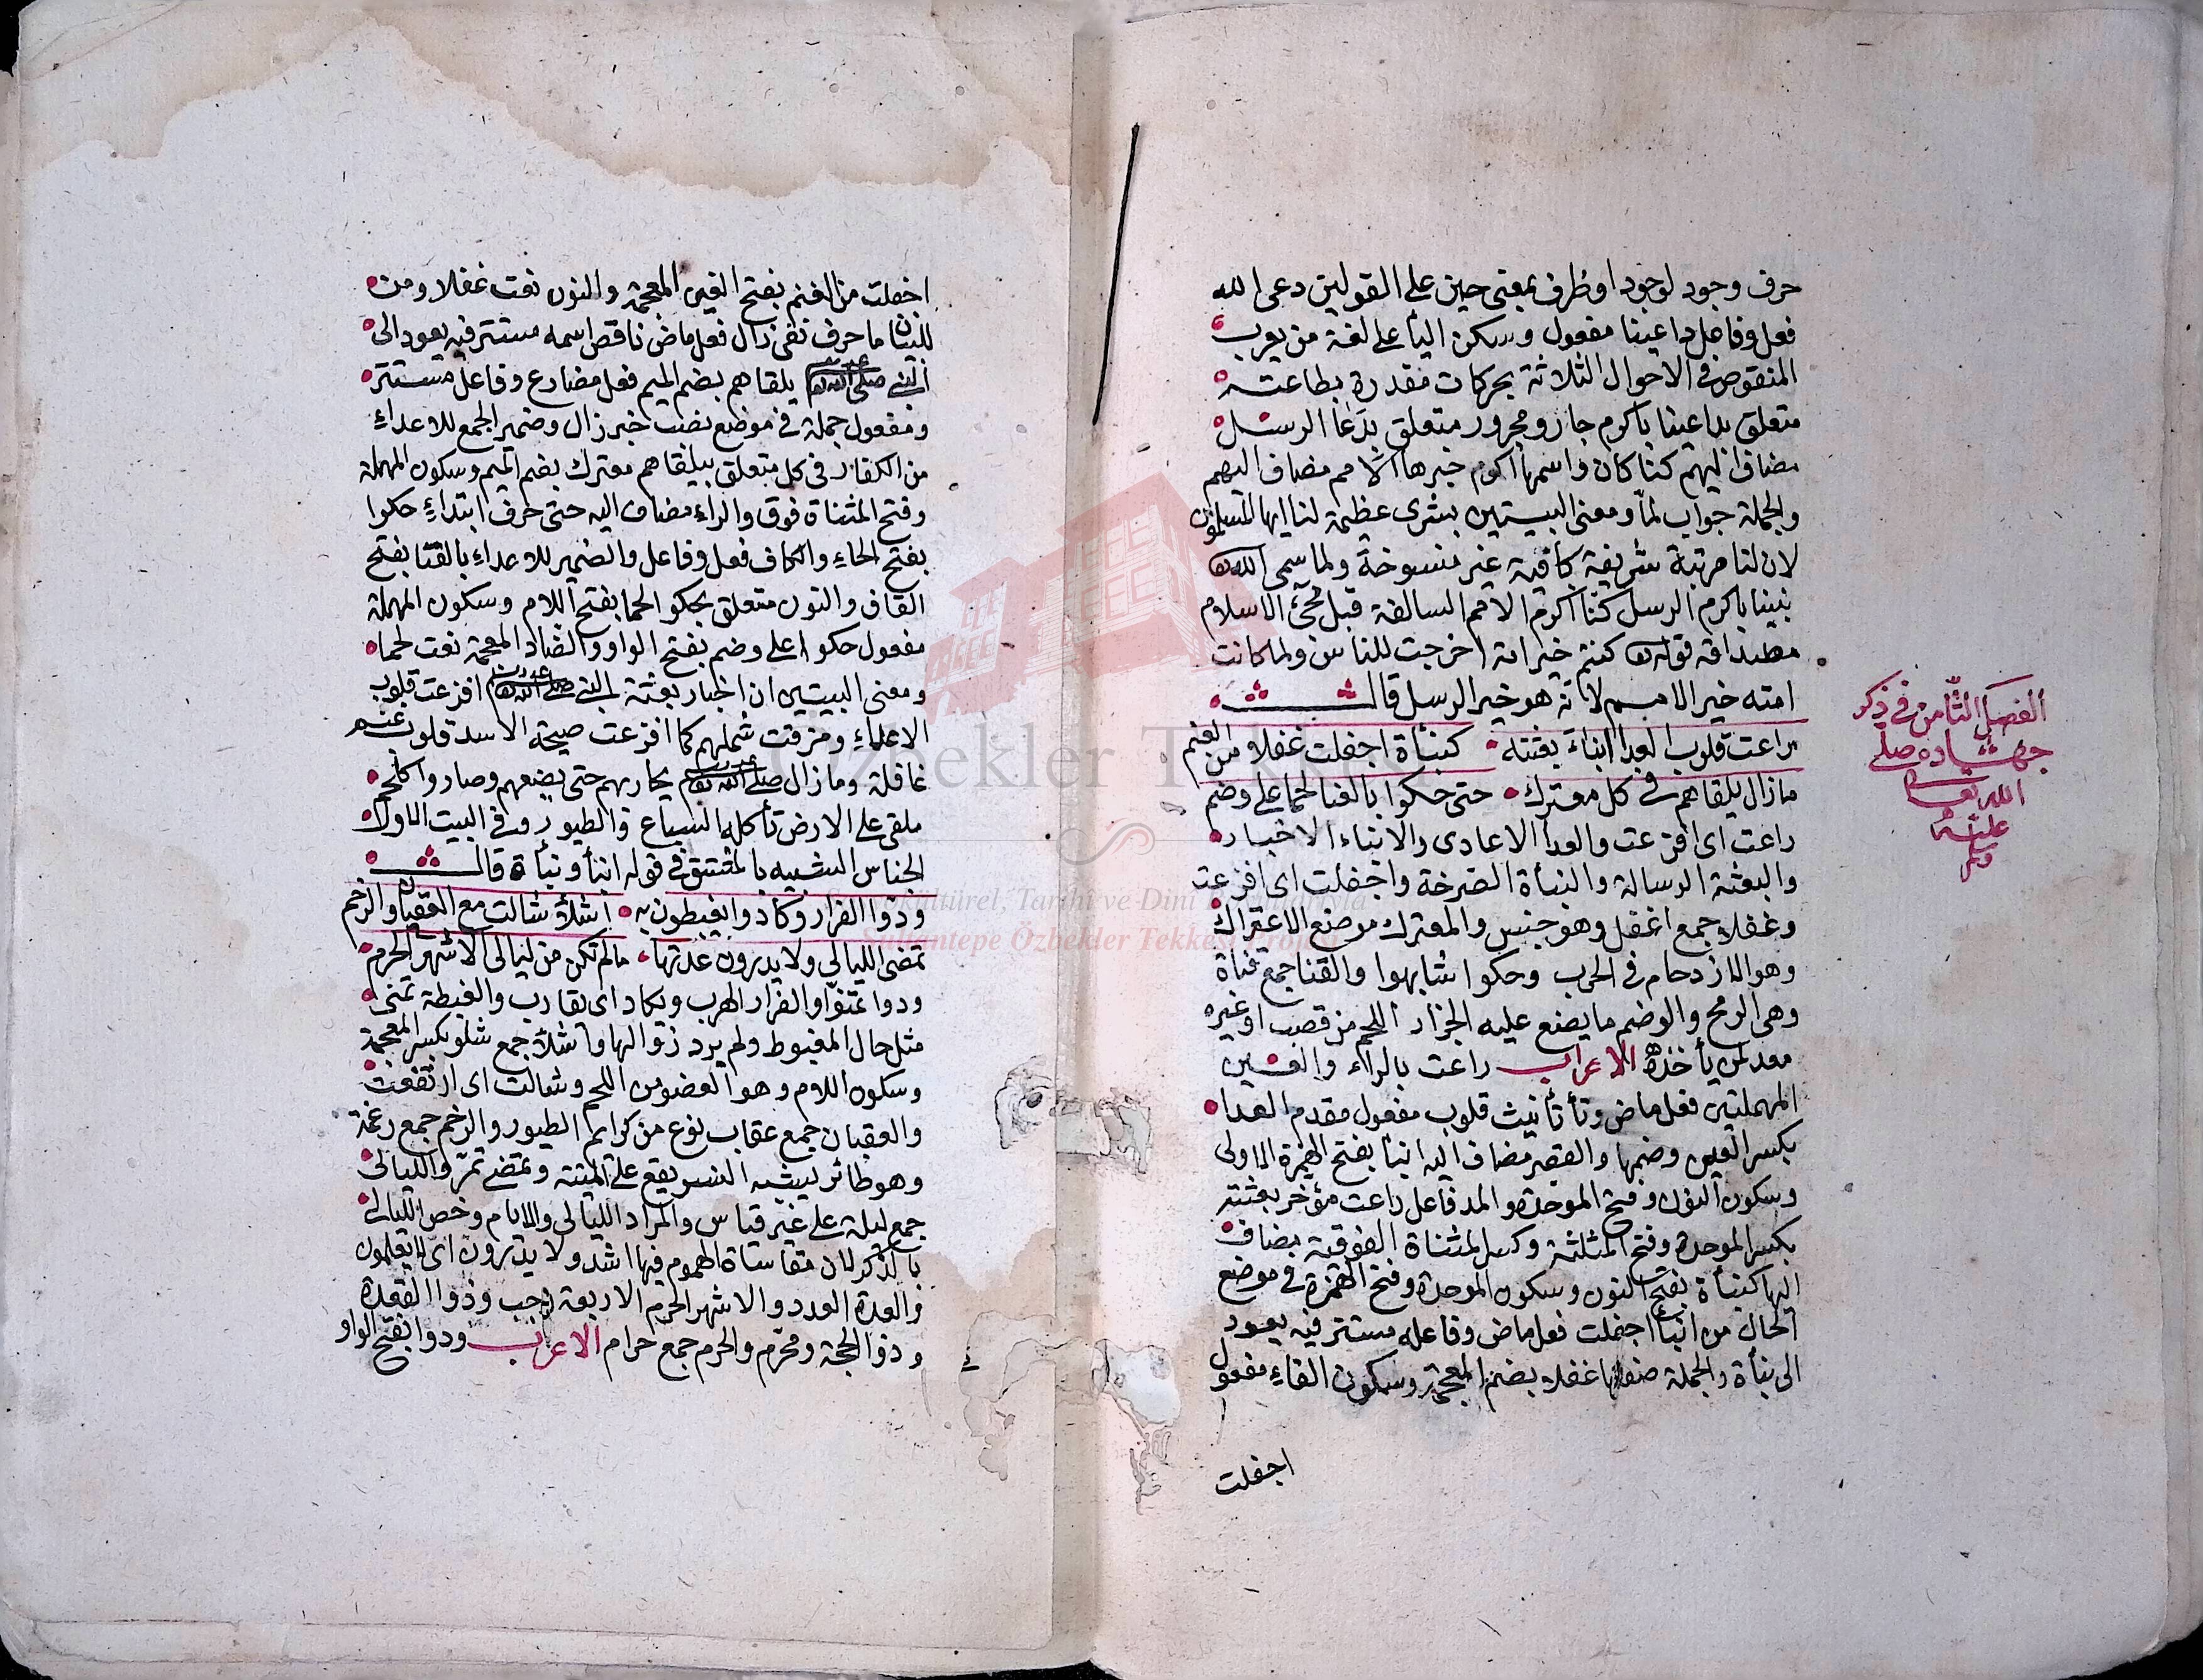 حرف وجود لوجود او ظرف بمعنى حين على القولين دعى الله
فعل وفاعل داعينا مفعول وسكن اليأ على لغة من يعرب
المنقوص في الاحوال الثلاثة بحركات مقدرة بطاعته
متعلق بداعينا باكرم جار ومجرور متعلق بدعا الرسل
مضاف اليهم كنا كان واسمها اكرم خبرها الامم مضاف اليهم
والجملة جواب لمّا ومعنى البيتين بشرى عظيمة لنا ايها المسلمون
لان لنا مرتبة شريفة كافية غير منسوخة ولما سمى الله
نبينا باكرم الرسل كنا اكرم الامم السالفة قبل مجئ الاسلام
مصداقه قوله كنتم خير امة اخرجت للناس ولما كانت
امته خير الامم لانه هو خير الرسل قال
راعت قلوب العدا ابناء بعثته كنبأة اجفلت غفلا من الغنم
مازال يلقاهم في كل معترك حتى حكوا بالقنا لحما على وضم
راعت اى افزعت والعدا الاعادى والابناء الاخبار
والبعثة الرسالة والنبأة الصرخة واجفلت اى افزعت
وغفلا جمع اغفل وهو جنس والمعترك موضع الاعتراك
وهو الازدحام في الحرب وحكوا شابهوا والقنا جمع قناة
وهى الرمح والوضم ما يضع عليه الجزار اللحم من قصب او غيره
معد لمن يأخذه الاعراب راعت بالراء والعين
المهملتين فعل ماض وتأ تأنيث قلوب مفعول مقدم العدا
بكسر العين وضمها والقصر مضاف اليه انبا بفتح الهمزة الاولى
وسكون النون وفتح الموحدة والمد فاعل راعت مؤخر بعثته
بكسر الموحدة وفتح المثلثة وكسر المثناة الفوقية مضاف
اليها كنبأة بفتح النون وسكون الموحدة وفتح الهمزة في موضع
الحال من انبأ اجفلت فعل ماض وفاعله مستتر فيه يعود
الى نبأة والجملة صفتها غفلا بضم المعجمة وسكون الفاء مفعول
اجفلت
الفصل الثامن في ذكر
جهاده صلى
الله تعالى
عليه
وسلم
اجفلت من الغنم بفتح الغين المعجمة والنون نعت غفلا ومن
للبيان ما حرف نفى زال فعل ماض ناقص اسمه مستتر فيه يعود الى
النبى صلى الله عليه وسلم يلقاهم بضم الميم فعل مضارع وفاعل مستتر
ومفعول جملة في موضع نصب خبر زال وضمير الجمع للاعداء
من الكفار في كل متعلق بيلقاهم معترك بضم الميم وسكون المهملة
وفتح المثناة فوق والراء مضاف اليه حتى حرف ابتداء حكوا
بفتح الحاء والكاف فعل وفاعل والضمير للاعداء بالقنا بفتح
القاف والنون متعلق بحكوا لحما بفتح اللام وسكون المهملة
مفعول حكوا على وضم بفتح الواو والضاد المعجمة نعت لحما
ومعنى البيتين ان اخبار بعثة النبى صلى الله عليه وسلم افزعت قلوب
الاعداء ومزقت شملهم كما افزعت صيحة الاسد قلوب غنم
غافلة ومازال صلى الله عليه وسلم يحاربهم حتى يضعهم وصاروا كلحم
ملقى على الارض تأكله السباع والطيور وفي البيت الاول
الجناس الشبيه بالمشتق في قوله انبأ ونبأة قال
ودوا الفرار وكادوا يغبطون به اشلاء شالت مع العقبان والرخم
تمضى الليالى ولا يدرون عدتها مالم تكن من ليالى الاشهر الحرم
ودوا تمنوا والفرار الهرب وكاد اى يقارب والغبطة تمنى
مثل حال المغبوط ولم يرد زوالها واشلأ جمع شلو بكسر المعجمة
وسكون اللام وهو العضو من اللحم وشالت اى ارتفعت
والعقبان جمع عقاب نوع من كرايم الطيور والرخم جمع رخمة
وهو طائر يشبه النسر يقع على الميتة وتمضى تمر والليالى
جمع ليلة على غير قياس والمراد الليالى والايام وخص الليالى
بالذكر لان مقاساة الهموم فيها اشد ولا يدرون اى لا يعلمون
والعدة العدد والاشهر الحرم الاربعة رجب وذوا القعدة
وذو الحجة ومحرم والحرم جمع حرام الاعراب ودوا بفتح الواو
Özbekler Tekkesi
Sosyokültürel, Tarihî ve Dinî
Sultantepe Özbekler Tekkesi Projesi